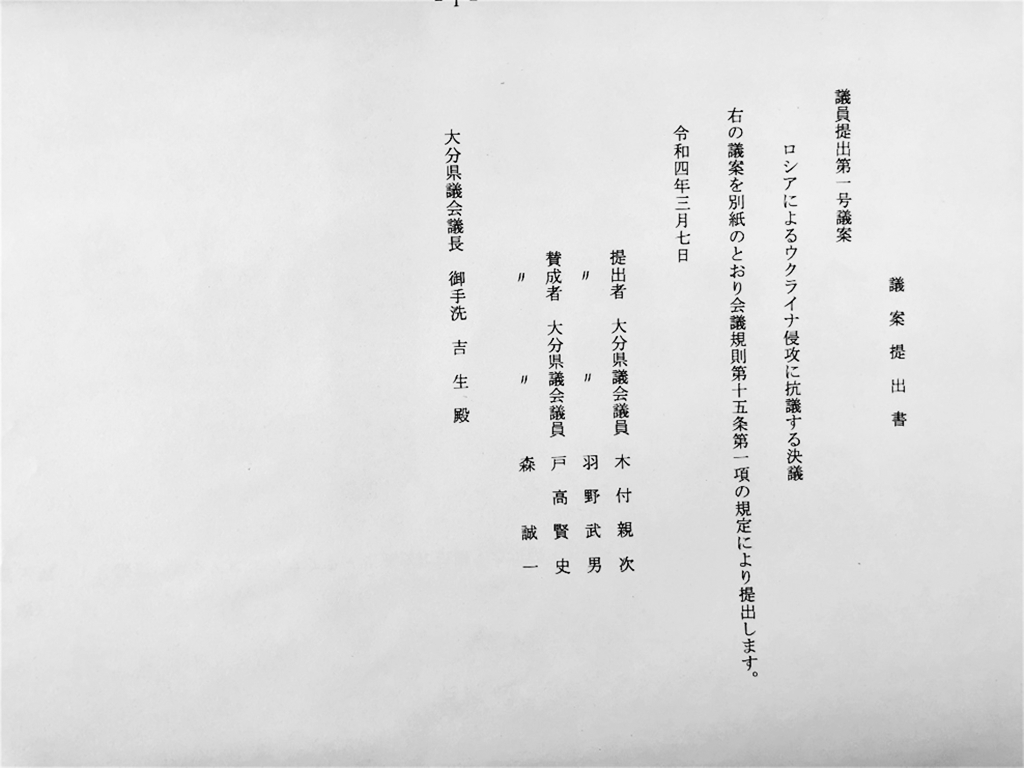 議案提出書
議員提出第一号議案
ロシアによるウクライナ侵攻に抗議する決議
右の議案を別紙のとおり会議規則第十五条第一項の規定により提出します。
令和四年三月七日
提出者 大分県議会議員 木付親次
〃 〃 羽野武男
賛成者 大分県議会議員 戸高賢史
〃 〃 森誠一
大分県議会議長 御手洗吉生殿